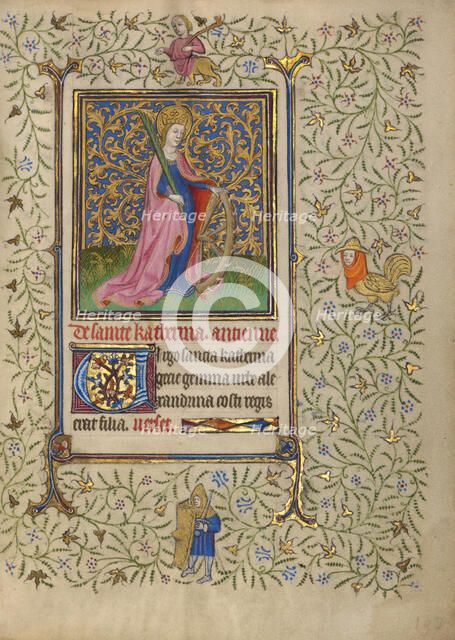 De sainte katherina. antienne
Virgo sancta katherina
grecie gemma urbe ale
xandrina costi regis
erat filia. Verset
Heritage
Heritage
Heritage
Heritage
Heritage
Heritage
Heritage
Heritage
Heritage